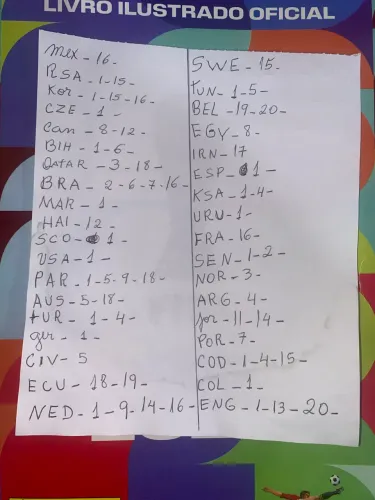 LIVRO ILUSTRADO OFICIAL
Mex - 16 -
RSA - 1 - 15 -
Kor - 1 - 15 - 16 -
CZE - 1 -
Can - 8 - 12 -
BIH - 1 - 6 -
QATAR - 3 - 18 -
BRA - 2 - 6 - 7 - 16 -
MAR - 1 -
HAI - 12 -
SCO - 1 -
USA - 1 -
PAR - 1 - 5 - 9 - 18 -
AUS - 5 - 18 -
tUR - 1 - 4 -
ger - 1 -
CIV - 5
ECU - 18 - 19 -
NED - 1 - 9 - 14 - 16 -
SWE - 15 -
tUN - 1 - 5 -
BEL - 19 - 20 -
EGY - 8 -
IRN - 17
ESP - 1 -
KSA - 1 - 4 -
URU - 1 -
FRA - 16 -
SEN - 1 - 2 -
NOR - 3 -
ARG - 4 -
Jor - 11 - 14 -
POR - 7 -
COD - 1 - 4 - 15 -
COL - 1 -
ENG - 1 - 13 - 20 -